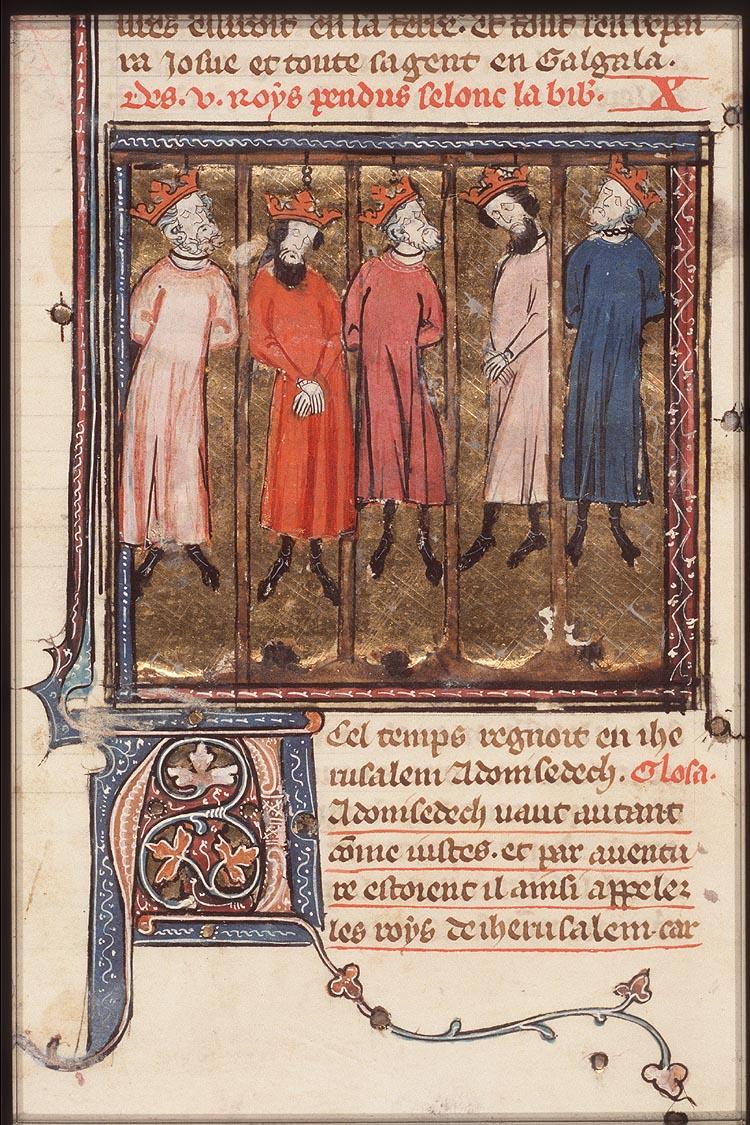 en la terre. et tout
ra Josue et toute sa gent en Galgala.
Des .v. roys pendus selonc la bib. X
Cel temps regnoit en ihe
rusalem Adonisedech. Glosa.
Adonisedech vaut autant
cōme iustes. et par auentu
re estoient il ainsi appelez
les roys de iherusalem. car